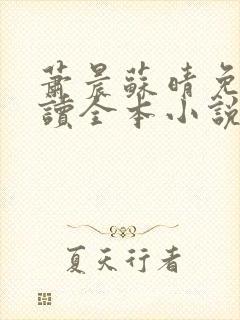 蕭晨蘇晴免
讀全本小說
夏天行者